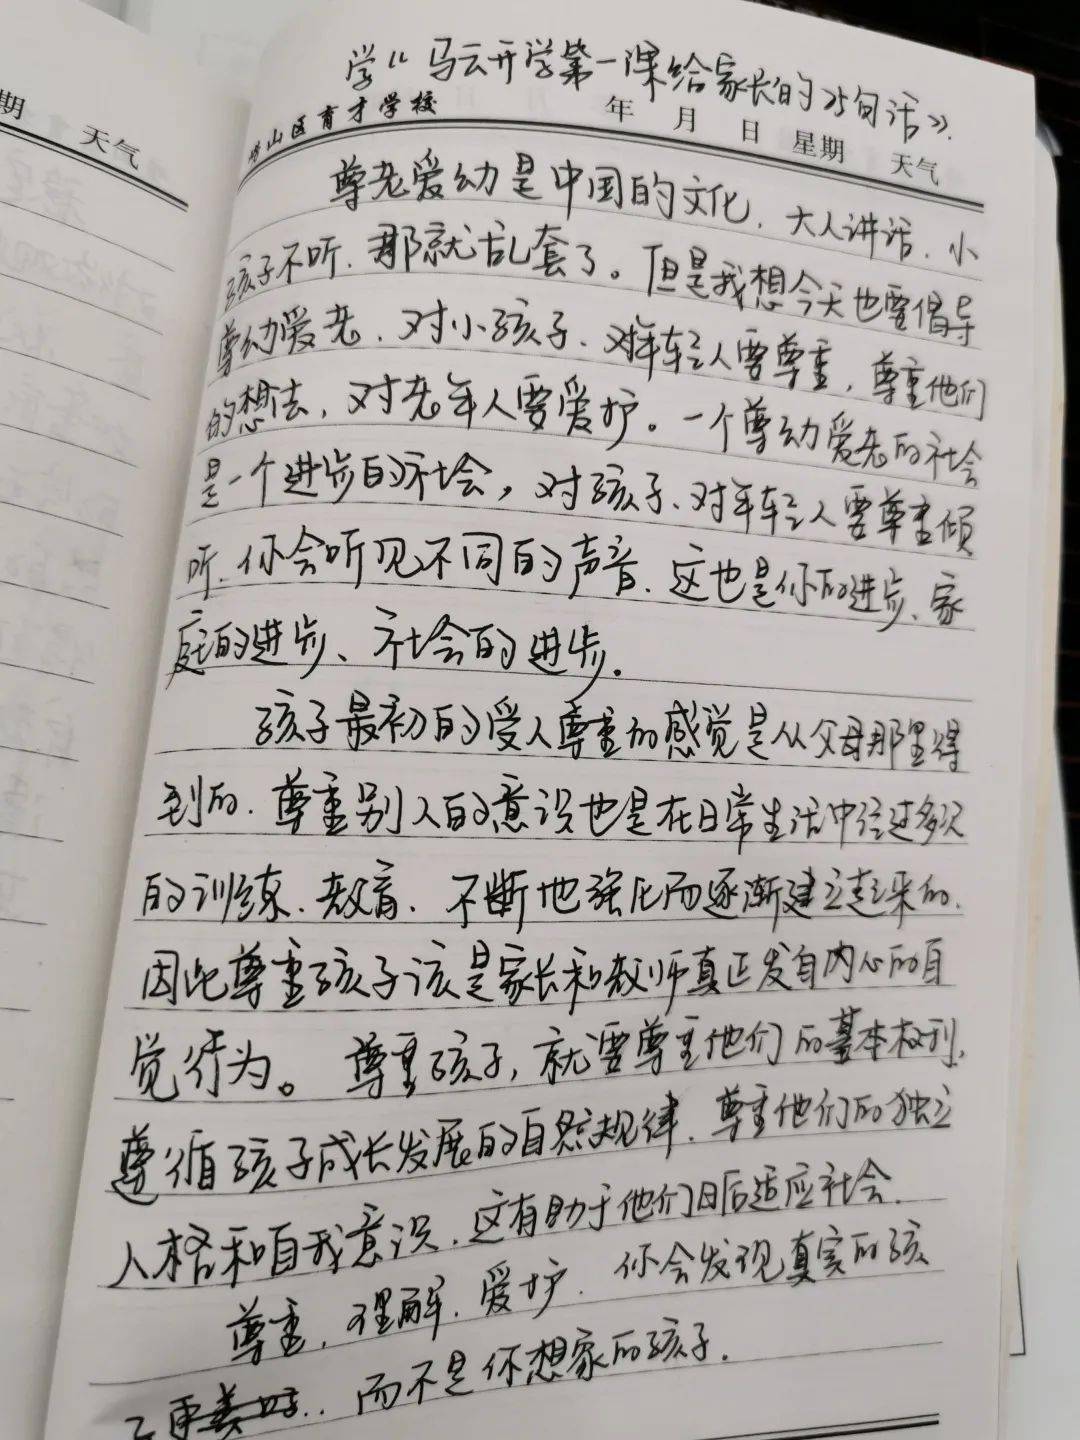 期 天气
学《马云开学第一课给家长的25句话》.
山区育才学校 年 月 日 星期 天气
尊老爱幼是中国的文化,大人讲话,小
孩子不听,那就乱套了。但是我想今天也要倡导
尊幼爱老,对小孩子、对年轻人要尊重,尊重他们
的想法,对老年人要爱护。一个尊幼爱老的社会
是一个进步的社会,对孩子、对年轻人要尊重倾
听,你会听见不同的声音,这也是你的进步、家
庭的进步、社会的进步.
孩子最初的受人尊重的感觉是从父母那里得
到的.尊重别人的意识也是在日常生活中经过多次
的训练、教育、不断地强化而逐渐建立起来的.
因此尊重孩子该是家长和教师真正发自内心的自
觉行为。尊重孩子,就要尊重他们的基本权利,
遵循孩子成长发展的自然规律,尊重他们的独立
人格和自我意识,这有助于他们日后适应社会.
尊重,理解,爱护,你会发现真实的孩
子更,而不是你想象的孩子.